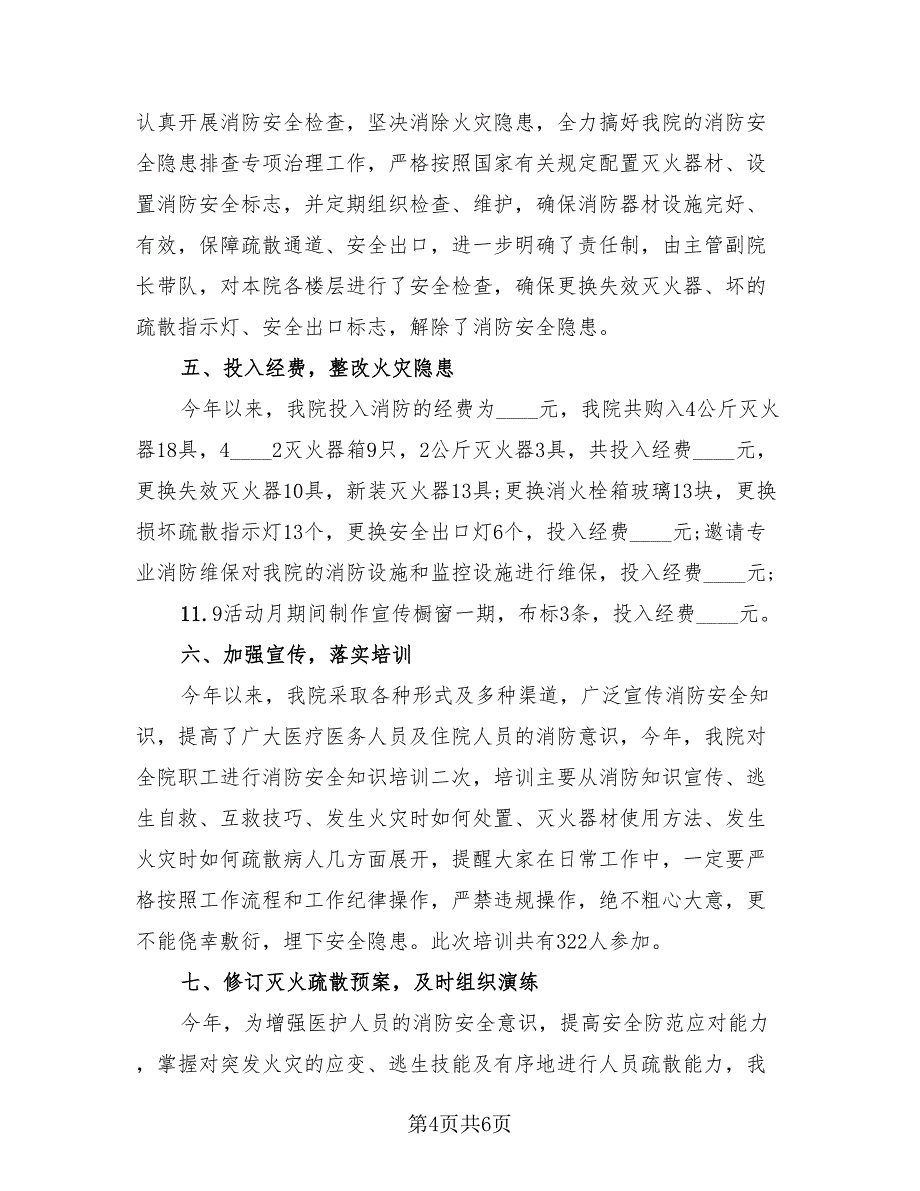 认真开展消防安全检查，坚决消除火灾隐患，全力搞好我院的消防安
全隐患排查专项治理工作，严格按照国家有关规定配置灭火器材、设
置消防安全标志，并定期组织检查、维护，确保消防器材设施完好、
有效，保障疏散通道、安全出口，进一步明确了责任制，由主管副院
长带队，对本院各楼层进行了安全检查，确保更换失效灭火器、坏的
疏散指示灯、安全出口标志，解除了消防安全隐患。
五、投入经费，整改火灾隐患
今年以来，我院投入消防的经费为____元，我院共购入4公斤灭火
器18具，4____2灭火器箱9只，2公斤灭火器3具，共投入经费____元，
更换失效灭火器10具，新装灭火器13具;更换消火栓箱玻璃13块，更换
损坏疏散指示灯13个，更换安全出口灯6个，投入经费____元;邀请专
业消防维保对我院的消防设施和监控设施进行维保，投入经费____元;
11.9活动月期间制作宣传橱窗一期，布标3条，投入经费____元。
六、加强宣传，落实培训
今年以来，我院采取各种形式及多种渠道，广泛宣传消防安全知
识，提高了广大医疗医务人员及住院人员的消防意识，今年，我院对
全院职工进行消防安全知识培训二次，培训主要从消防知识宣传、逃
生自救、互救技巧、发生火灾时如何处置、灭火器材使用方法、发生
火灾时如何疏散病人几方面展开，提醒大家在日常工作中，一定要严
格按照工作流程和工作纪律操作，严禁违规操作，绝不粗心大意，更
不能侥幸敷衍，埋下安全隐患。此次培训共有322人参加。
七、修订灭火疏散预案，及时组织演练
今年，为增强医护人员的消防安全意识，提高安全防范应对能力
，掌握对突发火灾的应变、逃生技能及有序地进行人员疏散能力，我
第4页共6页